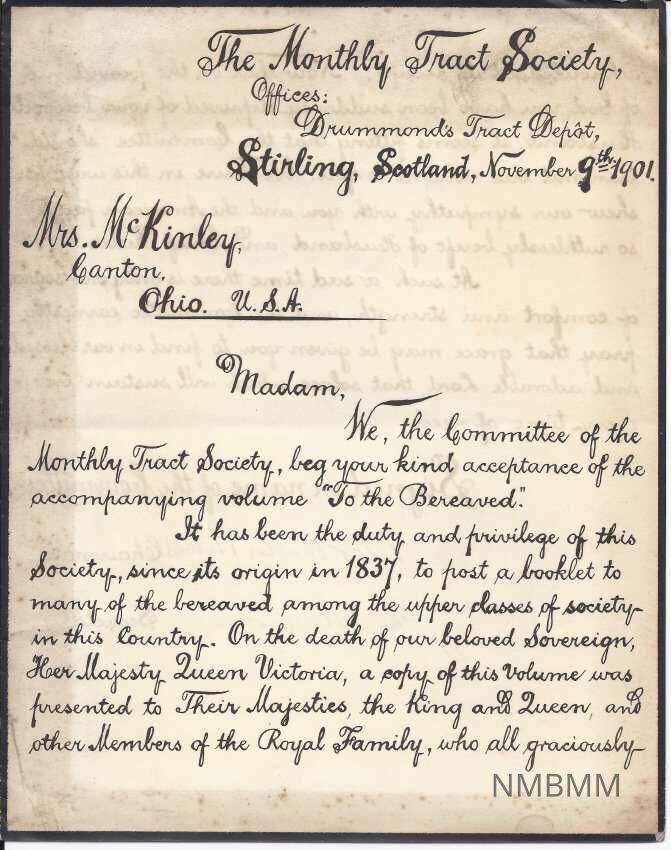 The Monthly Tract Society,
Offices:
Drummond's Tract Depôt,
Stirling, Scotland, November 9th 1901.
Mrs. McKinley,
Canton,
Ohio. U.S.A.
Madam,
We, the Committee of the
Monthly Tract Society, beg your kind acceptance of the
accompanying volume "To the Bereaved".
It has been the duty and privilege of this
Society, since its origin in 1837, to post a booklet to
many of the bereaved among the upper classes of society
in this Country. On the death of our beloved Sovereign,
Her Majesty Queen Victoria, a copy of this Volume was
presented to Their Majesties, the King and Queen, and
other Members of the Royal Family, who all graciously
NMBMM